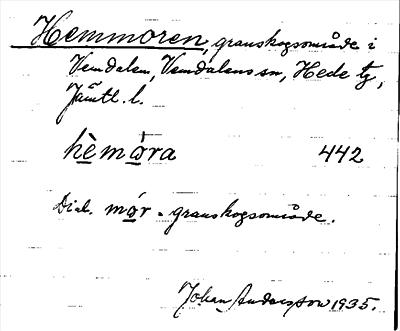 Hemmoren, granskogsområde i
Vemdalen, Vemdalens sn, Hede tg,
Jämtl. l.
hèmòra 442
Dial. mór = granskogsområde.
Johan Andersson 1935.